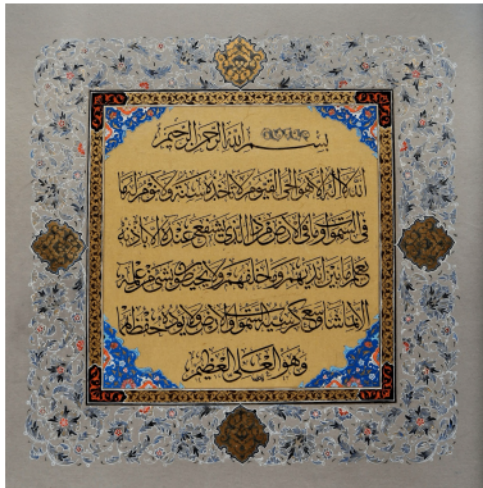 بسم الله الرحمن الرحیم
الله لا اله الا هو الحی القیوم لا تاخذه سنة ولا نوم له ما
فی السموات وما فی الارض من ذا الذی یشفع عنده الا باذنه
یعلم ما بین ایدیهم وما خلفهم ولا یحیطون بشیء من علمه
الا بما شاء وسع کرسیه السموات والارض ولا یوده حفظهما
وهو العلی العظیم